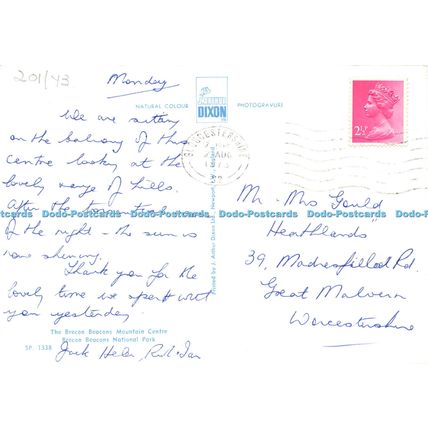 201/43
Monday
NATURAL COLOUR
ARTHUR DIXON
PHOTOGRAVURE
2½P
GLOUCESTERSHIRE
AUG
We are sitting
on the balcony of this
centre looking at the
lovely range of hills.
After the
Dodo-Postcards Dodo-Postcards Dodo-Postcards Dodo-Postcards Dodo-Postcards
of the night - the sun is
now shining.
Thank you for the
lovely time we spent with
you yesterday.
The Brecon Beacons Mountain Centre
Brecon Beacons National Park
SP 1338
Jack Helen, Ruth & Ian
Printed by J. Arthur Dixon Ltd., Newport, I.W., England
Mr. Mrs Gould
Heathlands
39, Madresfield Rd.
Great Malvern
Worcestershire